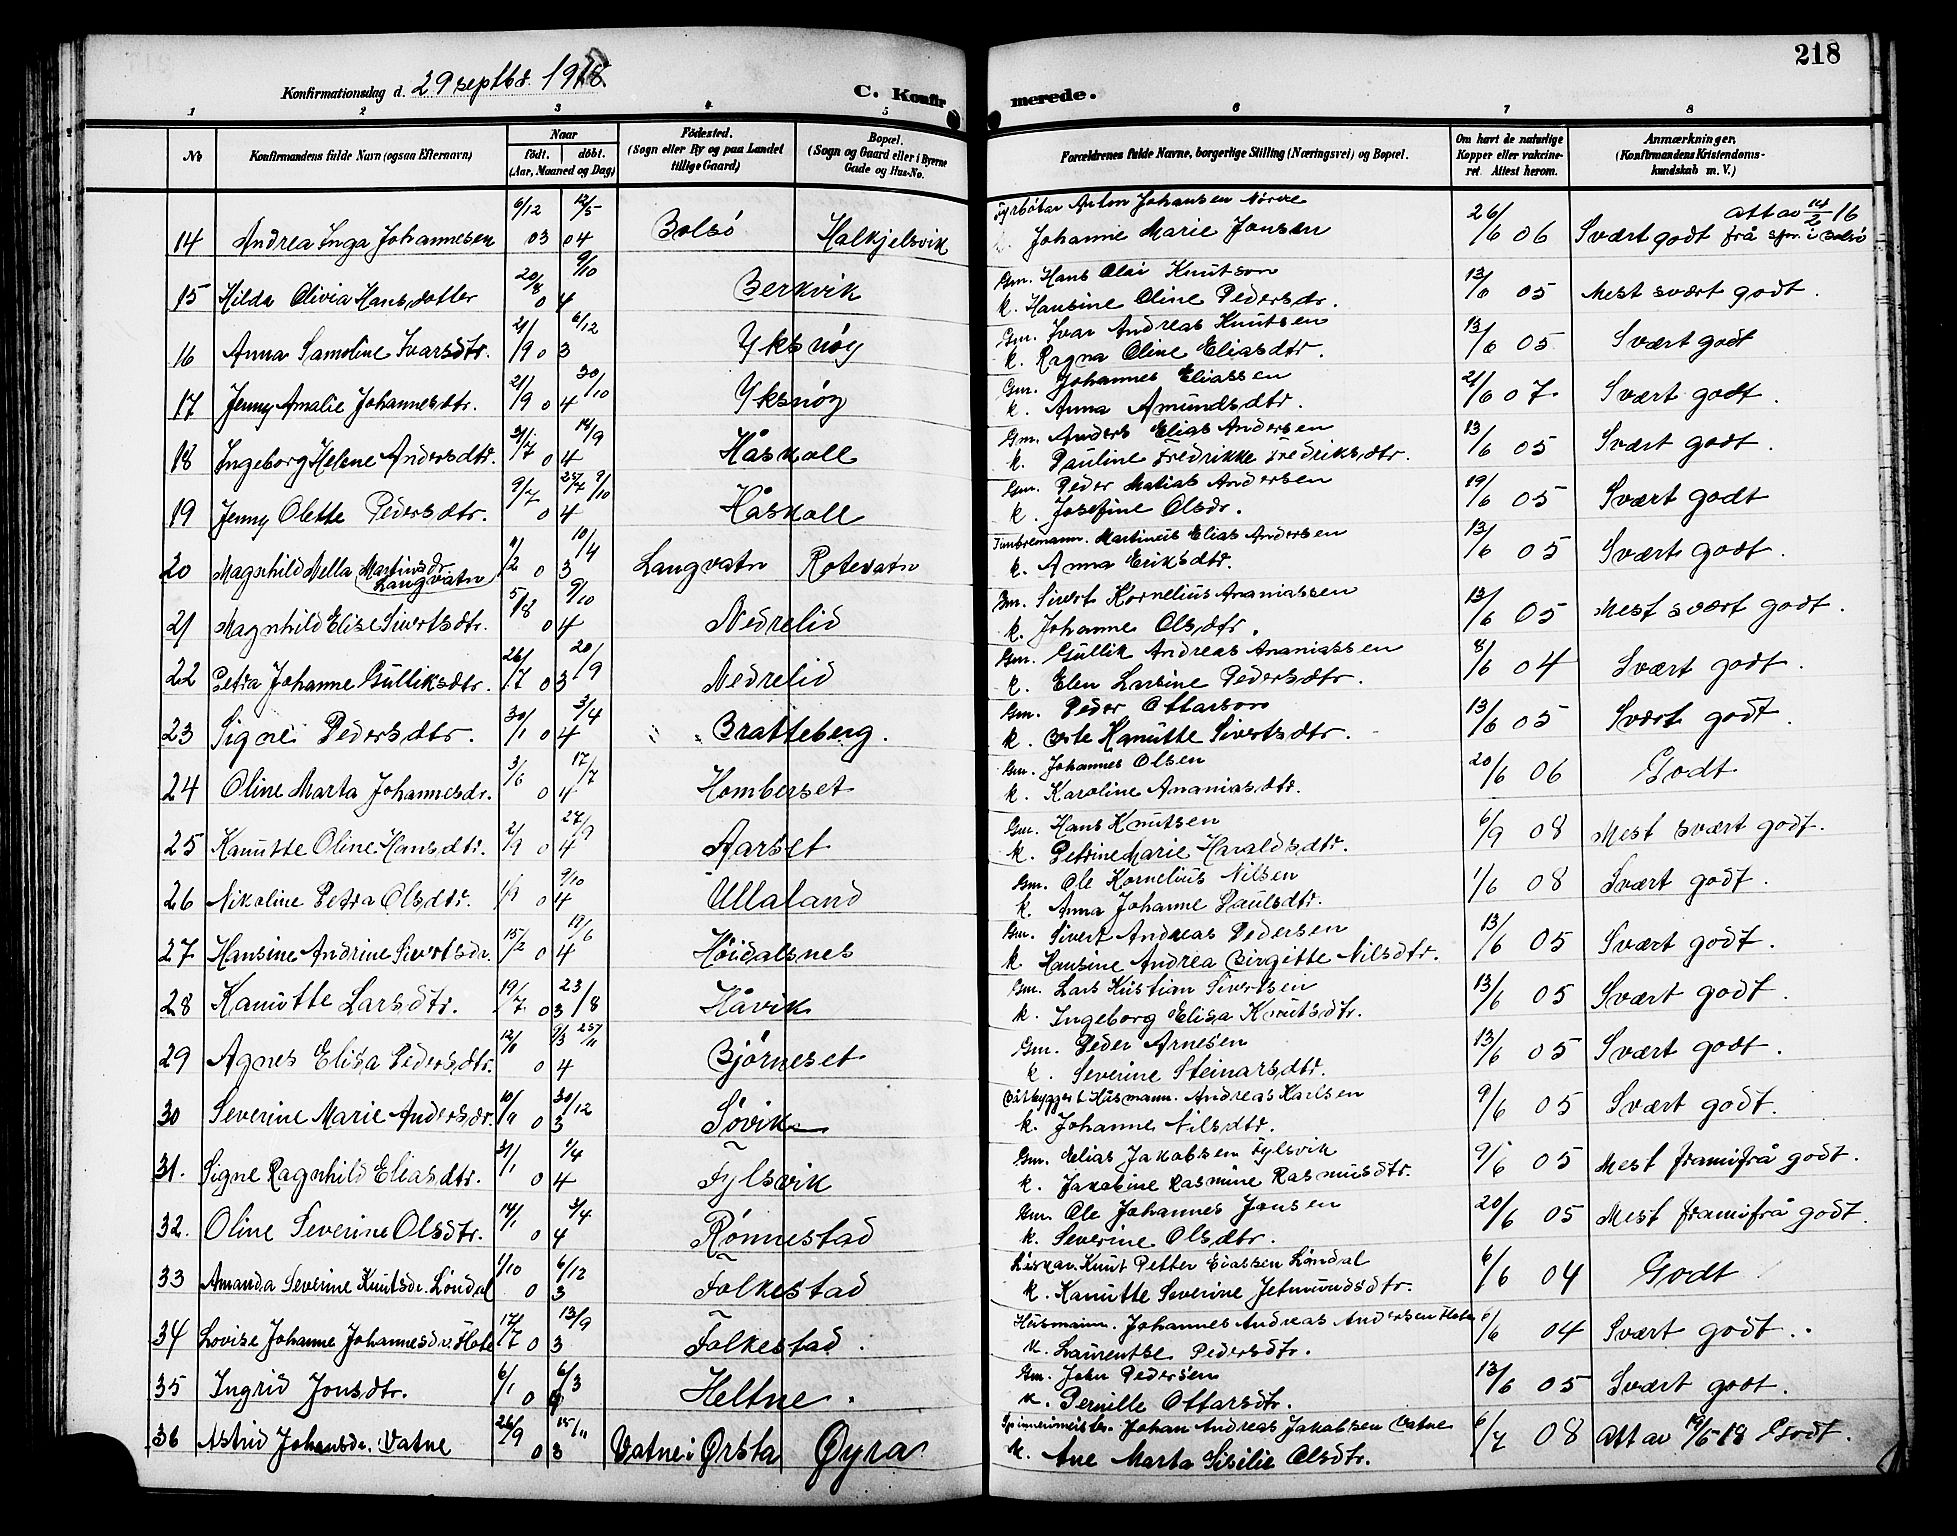 218
Konfirmationsdag d. 29 septbr. 1918
C. Konfirmerede.
1 2 3 4 5 6 7 8
No Konfirmandens fulde Navn (ogsaa Efternavn) Naar født. døbt. (Aar, Maaned og Dag) Fødested. (Sogn eller By og paa Landet tillige Gaard) Bopæl. (Sogn og Gaard eller i Byerne Gade og Hus-No. Forældrenes fulde Navne, borgerlige Stilling (Næringsvei) og Bopæl. Om havt de naturlige Kopper eller vakcineret. Attest herom. Anmærkninger. (Konfirmandens Kristendomskundskab m. V.)
14 Andrea Inga Johannesen 6/12 03 12/5 04 Bolsö Halkjelsvik Fyrbøtar Anton Johansen Nörve
Johanne Marie Jonsen 26/6 06 Svært godt att av 14/2 16 frå spr. i Bolsö
15 Hilda Olivia Hansdotter 20/8 9/10 04 Berkvik Gm. Hans Olai Knutson
k. Hansine Oline Pedersdr. 13/6 05 Mest svært godt.
16 Anna Samoline Ivarsdtr. 21/9 6/12 03 Yksnöy Gm. Ivar Andreas Knutsen
k. Ragna Oline Eliasdtr. 13/6 05 Svært godt
17 Jenny Amalie Johannesdtr. 21/9 30/10 04 Yksnöy Gm. Johannes Eliassen
k. Anna Amundsdtr. 21/6 07 Svært godt.
18 Ingeborg Helene Andersdtr. 31/7 18/9 04 Håskoll Gm. Anders Elias Andersen
k. Pauline Fredrikke Fredriksdtr. 13/6 05 Svært godt.
19 Jenny Olette Pedersdtr. 9/7 25/7 9/10 04 Håskoll Gm. Peder Matias Andersen
k. Josefine Olsdr. 19/6 05 Svært godt
20 Magnhild Mella Martinsdr. Langvatn 11/2 10/4 03 Langvatn Rotevatn Timbremann. Martinus Elias Andersen
k. Anna Eriksdtr. 13/6 05 Svært godt.
21 Magnhild Elise Sivertsdtr. 5/8 9/10 04 Nedrelid Gm. Sivert Kornelius Ananiassen
k. Johanne Olsdtr. 13/6 05 Mest svært godt.
22 Petra Johanne Gulliksdtr. 26/7 20/9 03 Nedrelid Gm. Gullik Andreas Ananiassen
k. Elen Larsine Pedersdtr. 8/6 04 Svært godt.
23 Signe Pedersdtr. 30/1 3/4 04 Bratteberg. Gm. Peder Ottarson
k. Berte Kanutte Sivertsdtr. 13/6 05 Svært godt.
24 Oline Marta Johannesdr. 3/6 17/7 04 Homberset Gm. Johannes Olsen
k. Karoline Ananiasdtr. 20/6 06 Godt
25 Kanutte Oline Hansdtr. 2/9 27/9 04 Aarset Gm. Hans Knutsen
k. Petrine Marie Haraldsdtr. 6/9 08 Mest svært godt.
26 Nikoline Petra Olsdtr. 1/9 9/10 04 Ullaland Gm. Ole Kornelius Nilsen
k. Anna Johanne Paulsdtr. 1/6 08 Svært godt.
27 Hansine Andrine Sivertsdr. 15/2 12/6 04 Höidalsnes Gm. Sivert Andreas Pedersen
k. Hansine Andrea Birgitte Nilsdtr. 13/6 05 Svært godt.
28 Kanutte Larsdtr. 19/7 23/8 03 Håvik Gm. Lars Kristian Sivertsen
k. Ingeborg Elisa Knutsdtr. 13/6 05 Svært godt.
29 Agnes Elisa Pedersdtr. 04 Björneset Gm. Peder Arnesen
k. Severine Steinarsdtr. 13/6 05 Svært godt.
30 Severine Marie Andersdr. 30/12 03 Sövik Båtbygger & Husmann. Andreas Karlsen
k. Johanne Nilsdtr. 9/6 05 Svært godt.
31. Signe Ragnhild Eliasdtr. 31/1 1/4 04 Fylsvik Gm. Elias Jakobsen Fylsvik
k. Jakobine Rasmine Rasmusdtr. 9/6 05 Mest framifrå godt.
32. Oline Severine Olsdtr. 14/1 3/4 04 Rönnestad Gm. Ole Johannes Jonsen
k. Severine Olsdtr. 20/6 05 Mest framifrå godt.
33 Amanda Severine Knutsdr. Löndal 1/10 6/12 03 Folkestad Knut Petter Löndal
k. Kanutte Severine Jetmundsdtr. 6/6 04 Godt
34 Lovise Johanne Johannesdr. Flote 17/7 13/9 03 Folkestad Husmann. Johannes Andreas Andersen Flote
k. Laurentse Pedersdtr. 6/6 04 Svært godt.
35 Ingrid Jonsdtr. 6/1 6/3 04 Heltne. Gm. John Pedersen
k. Pernille Ottarsdtr. 13/6 05 Svært godt.
36 Astrid Johansdr. Vatne 26/9 15/11 03 Vatne i Ørsta Øyra Spinnerimeister. Johan Andreas Jakobsen Vatne
k. Ane Marta Sisilie Olsdtr. 6/7 08 att av 19/5 18 Godt.